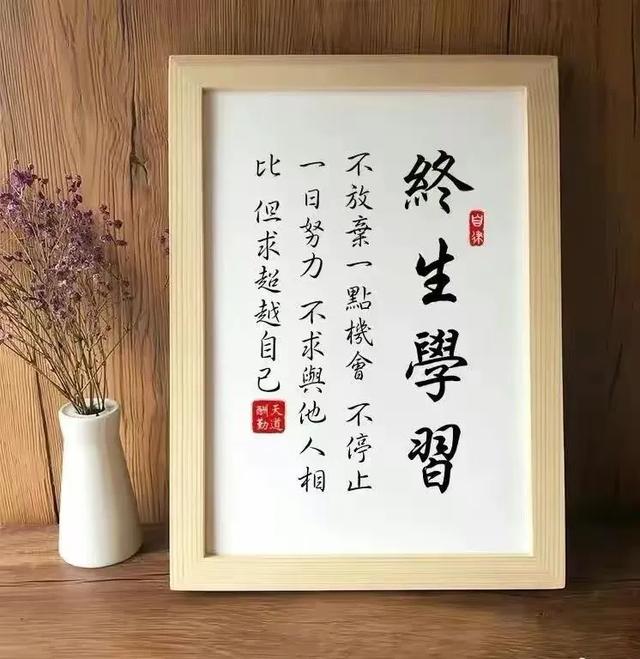 終生學習
自律
不放棄一點機會 不停止
一日努力 不求與他人相
比 但求超越自己
天道
酬勤